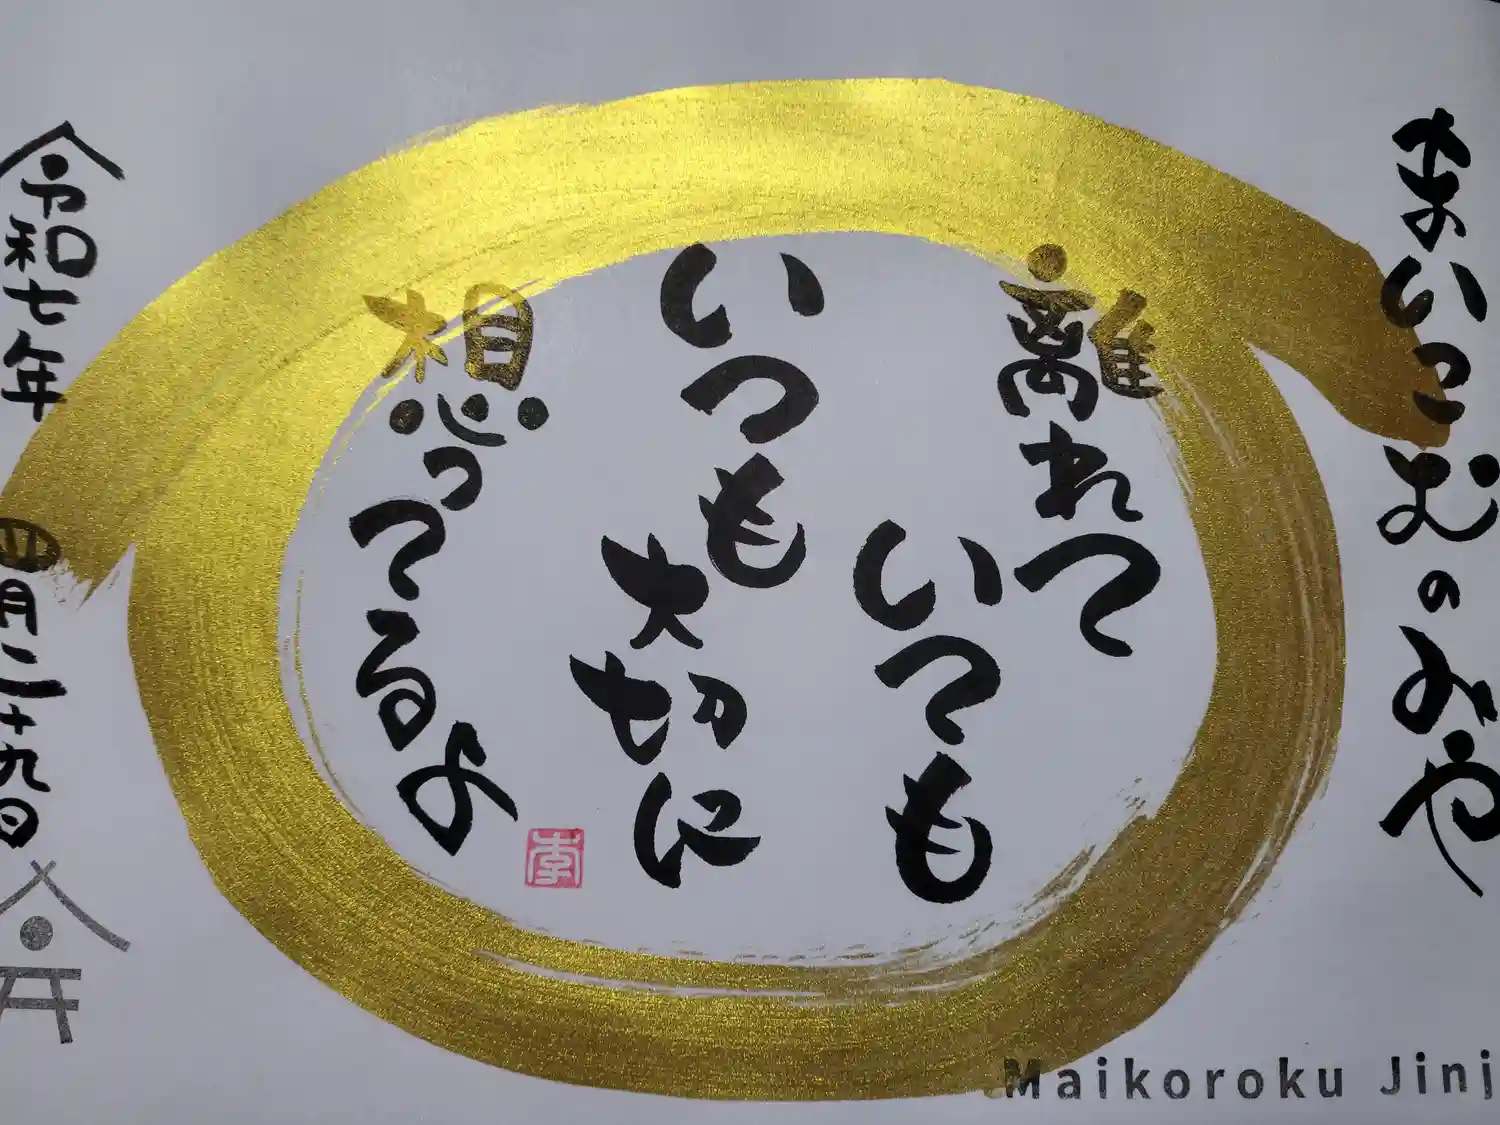 まいころむのみや
離れて
いても
いつも
大切に
想ってるよ
李
令和七年
四月二十九日
Maikoroku Jinj